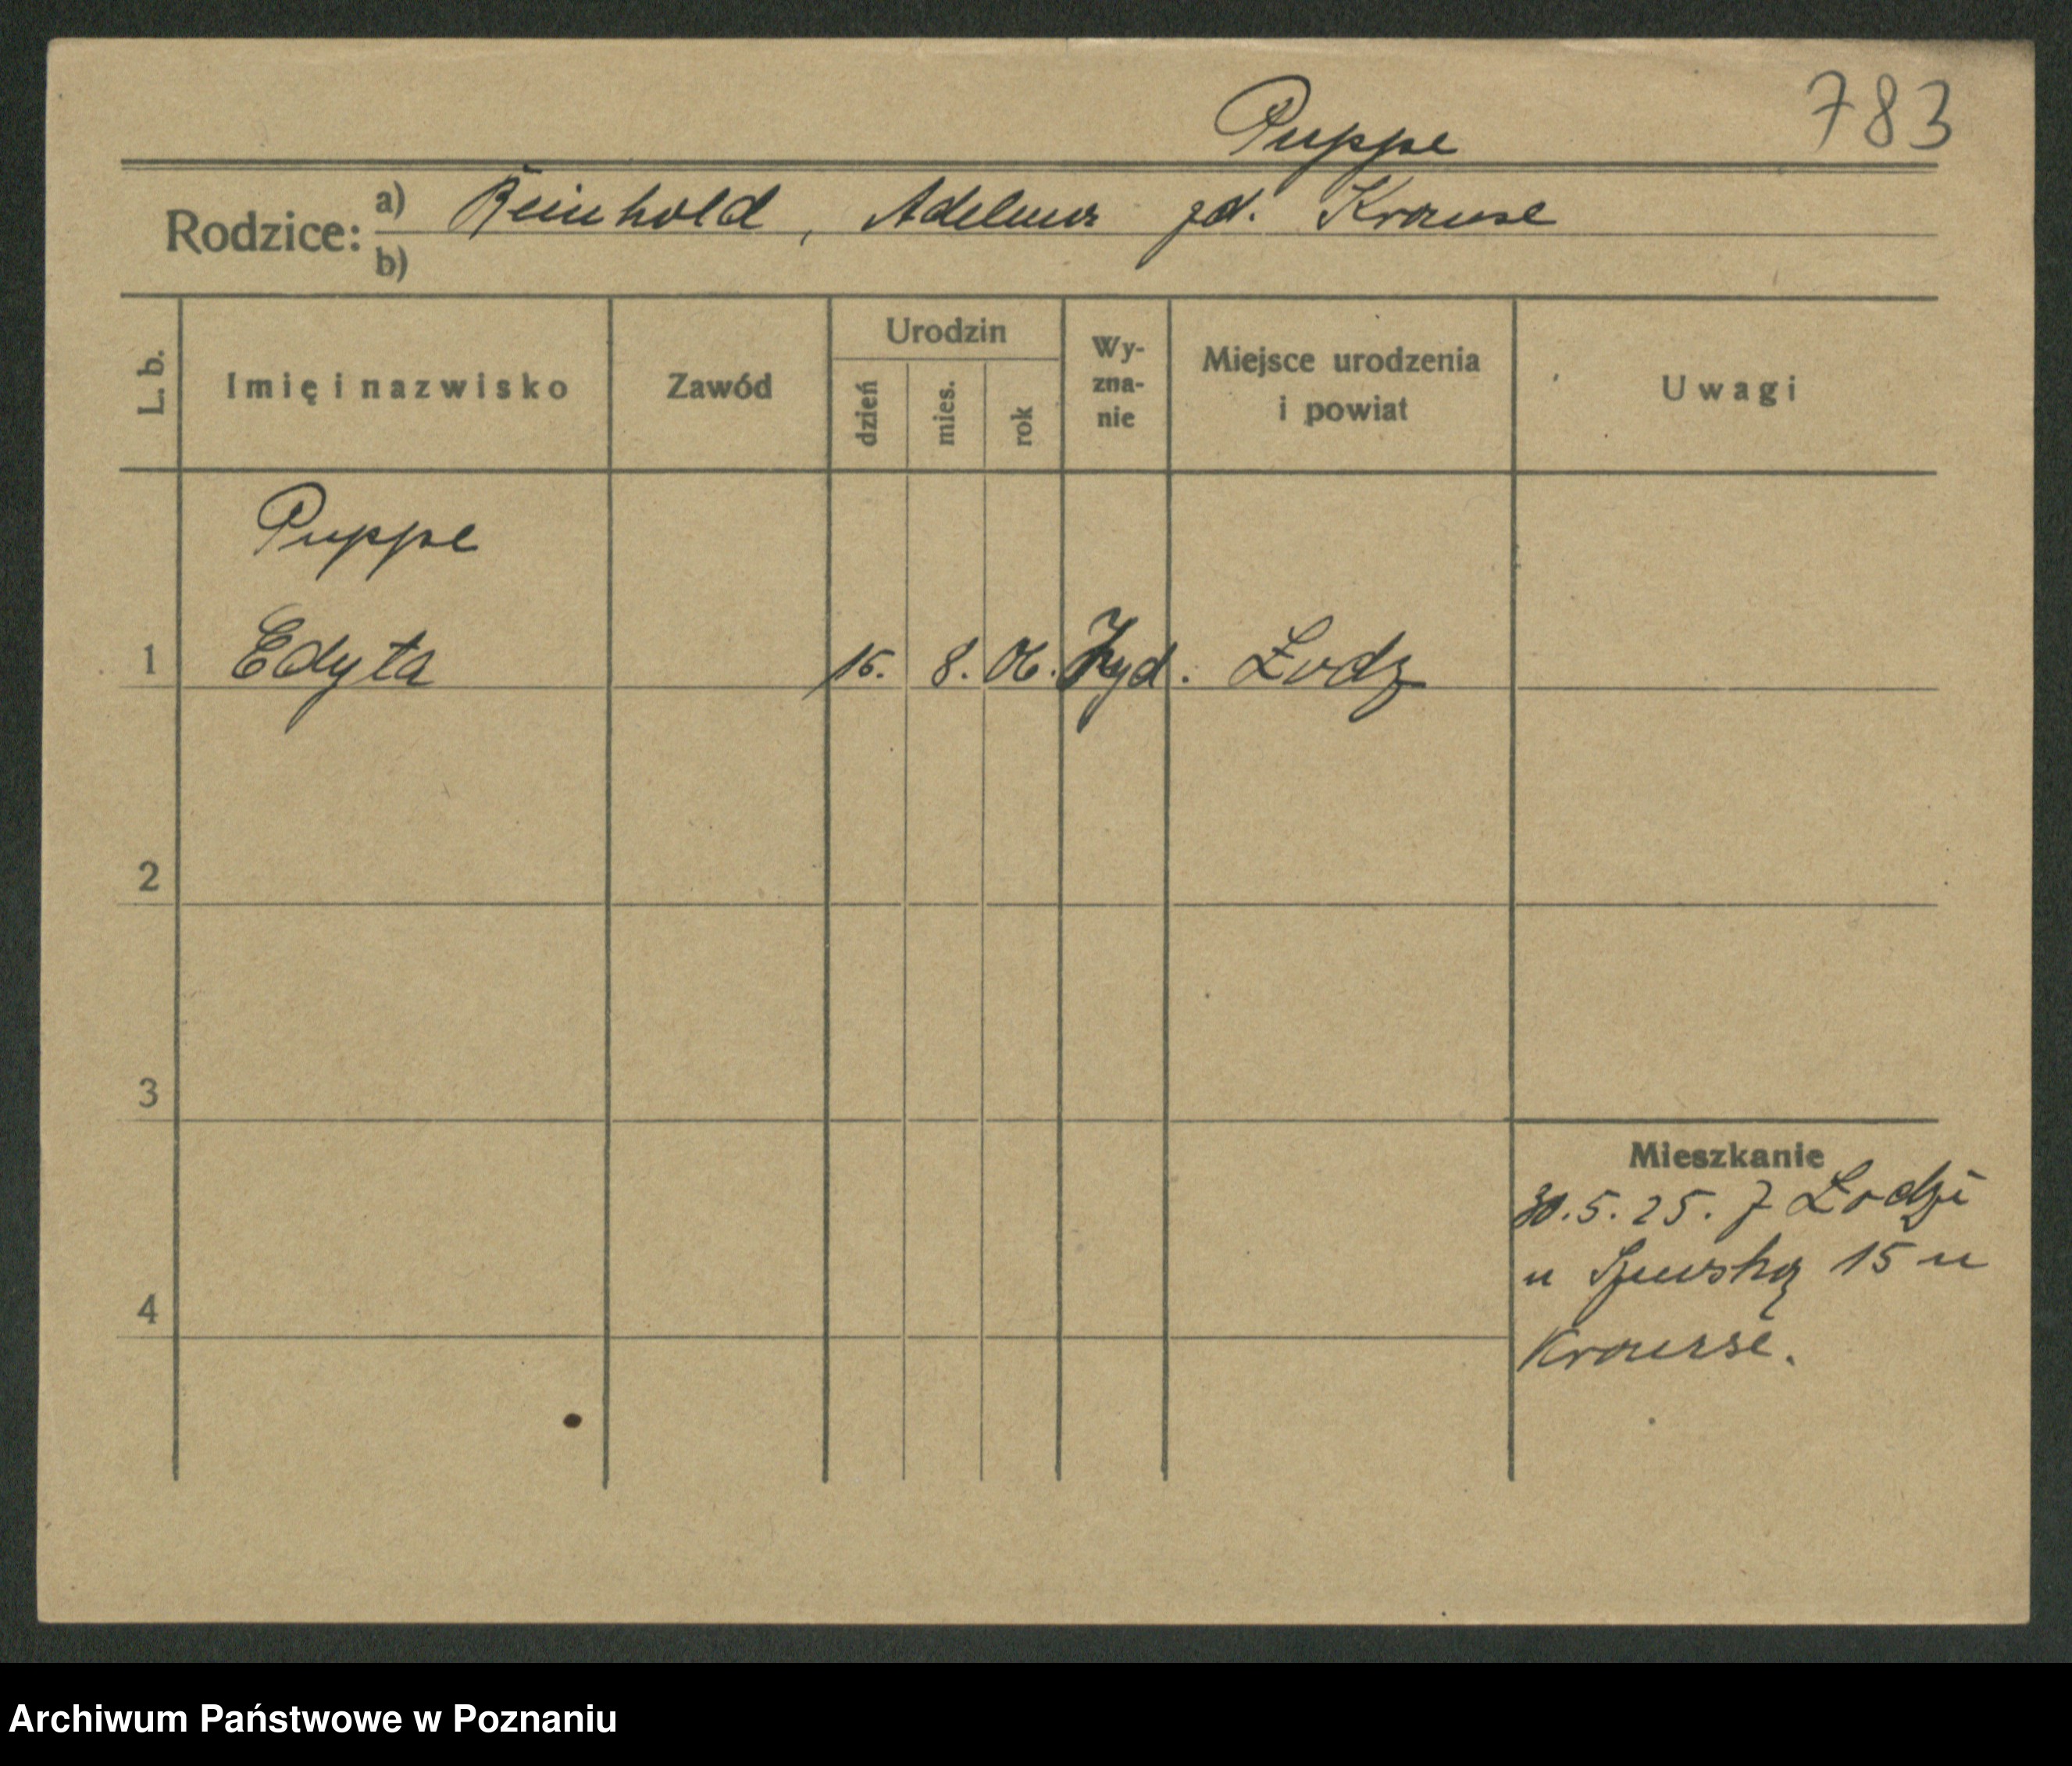 Puppe
783
Rodzice:
a) Reinhold, Adelina zd. Krause
b)
L. b.
Imię i nazwisko
Zawód
Urodzin
dzień
mies.
rok
Wy-
zna-
nie
Miejsce urodzenia
i powiat
Uwagi
Puppe
1 Edyta 8. 06. Żyd. Łodz
2
3
4
Mieszkanie
30.5.25. z Łodzi
15 u
Krause.
Archiwum Państwowe w Poznaniu